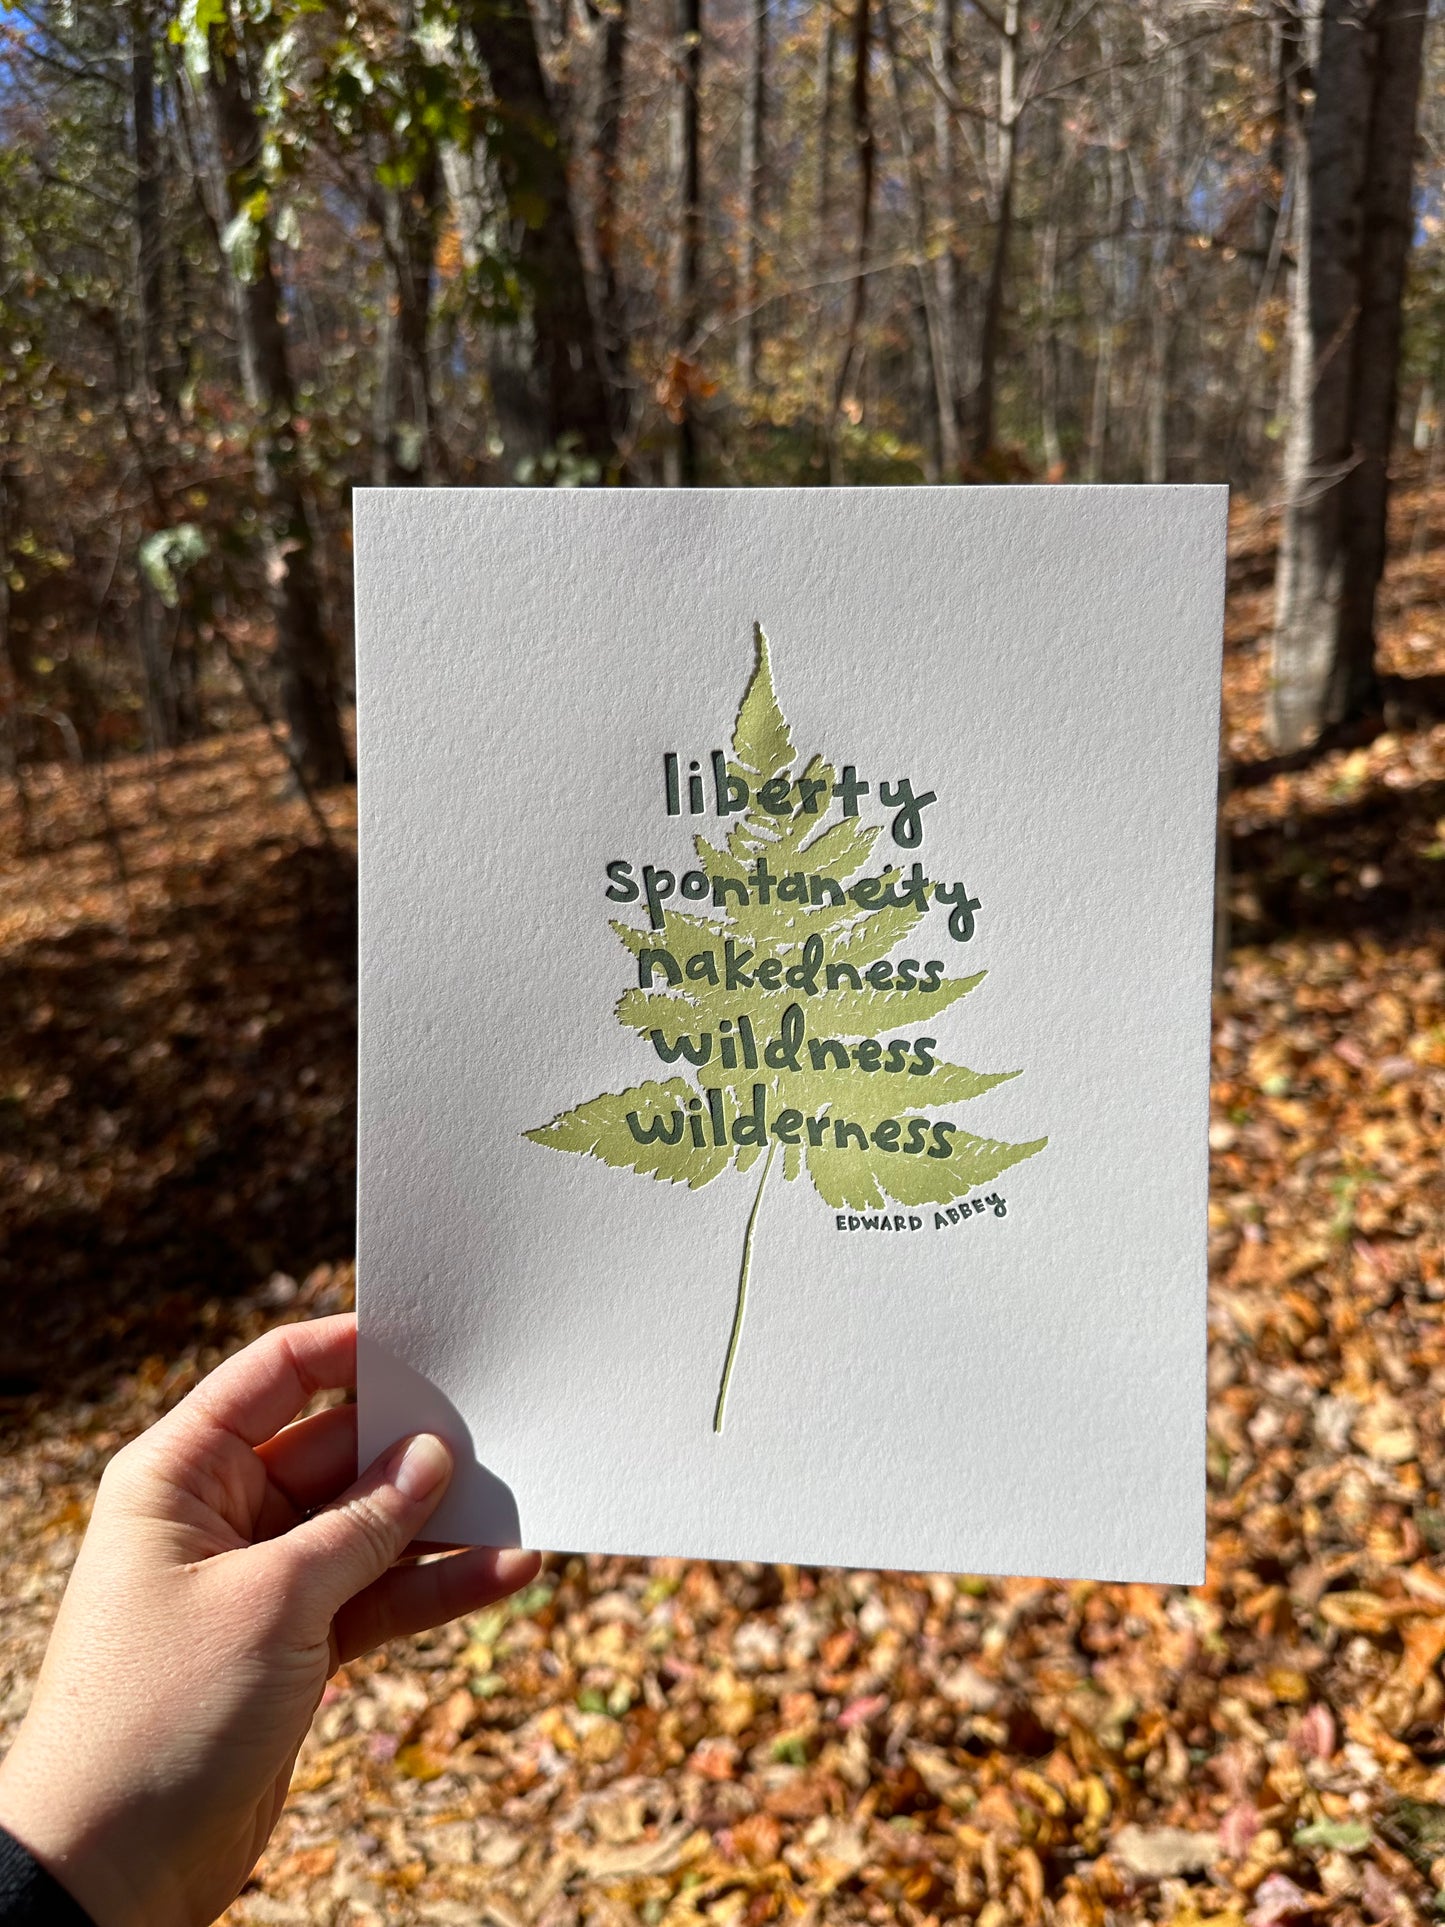 liberty
spontaneity
nakedness
wildness
wilderness
EDWARD ABBEY